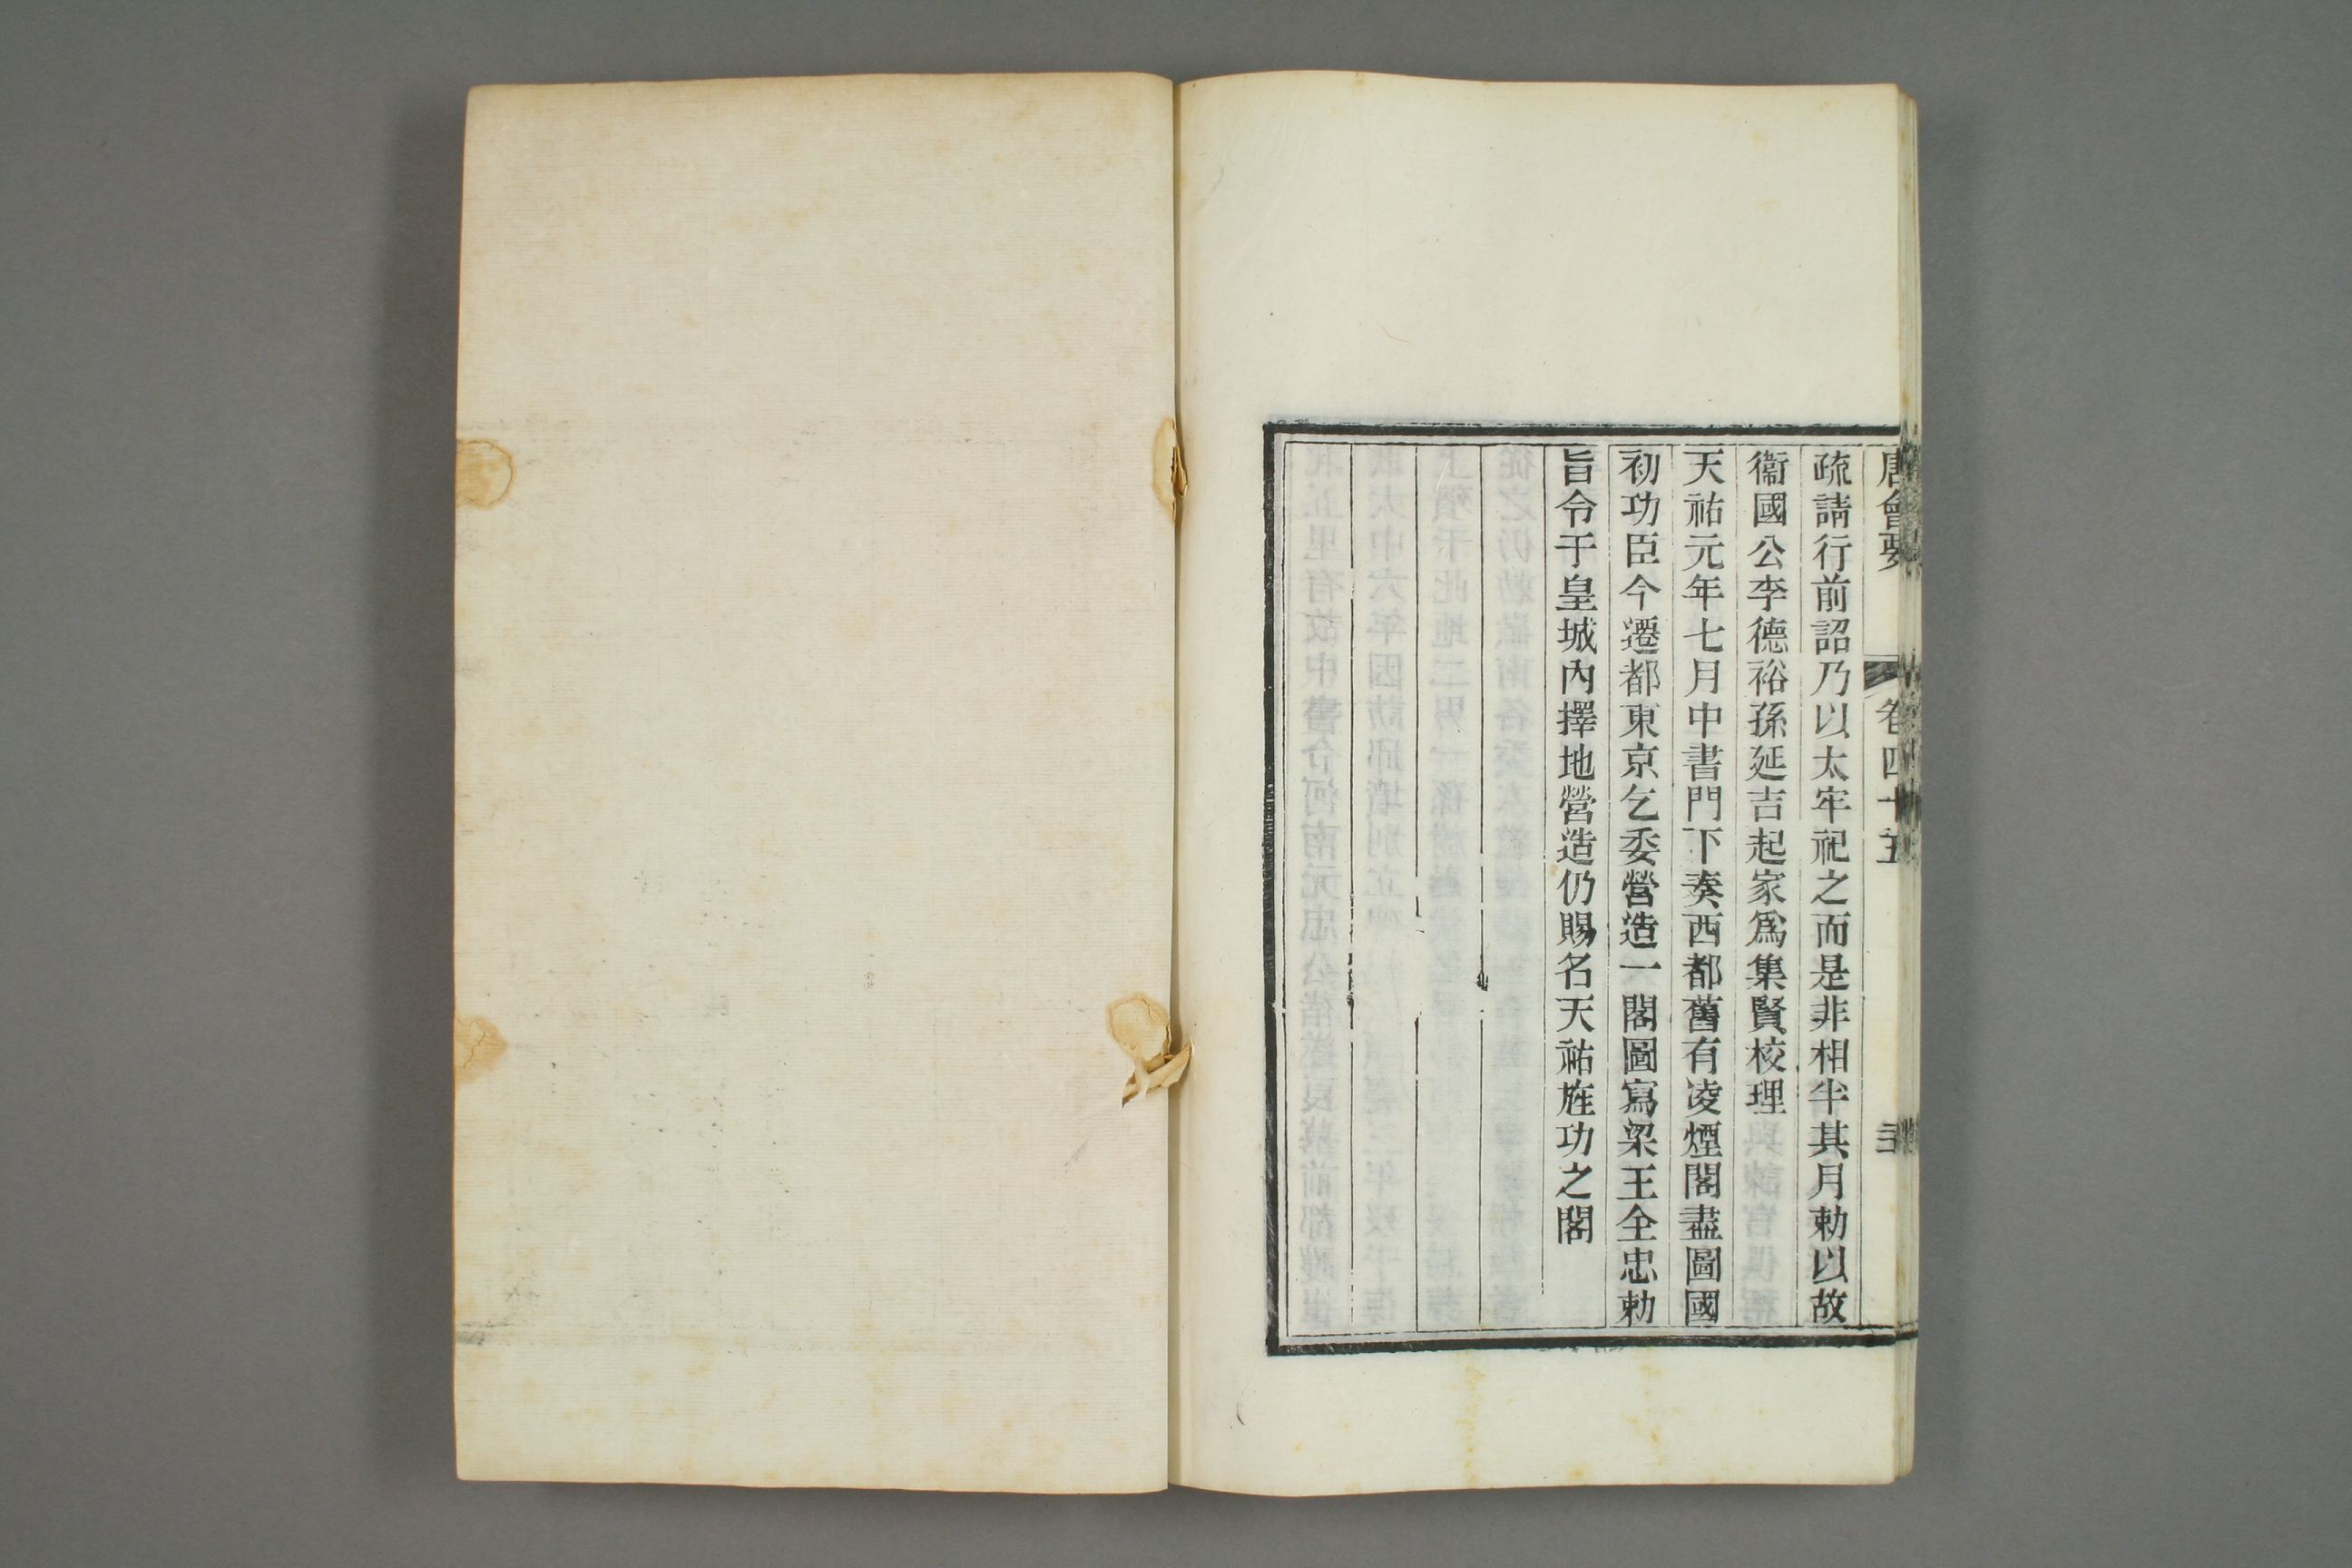 唐會要 卷四十五
疏請行前詔乃以太牢祀之而是非相半其月勅以故
衞國公李德裕孫延吉起家爲集賢校理
天祐元年七月中書門下奏西都舊有凌煙閣盡圖國
初功臣今遷都東京乞委營造一閣圖寫梁王全忠勅
旨令于皇城內擇地營造仍賜名天祐旌功之閣